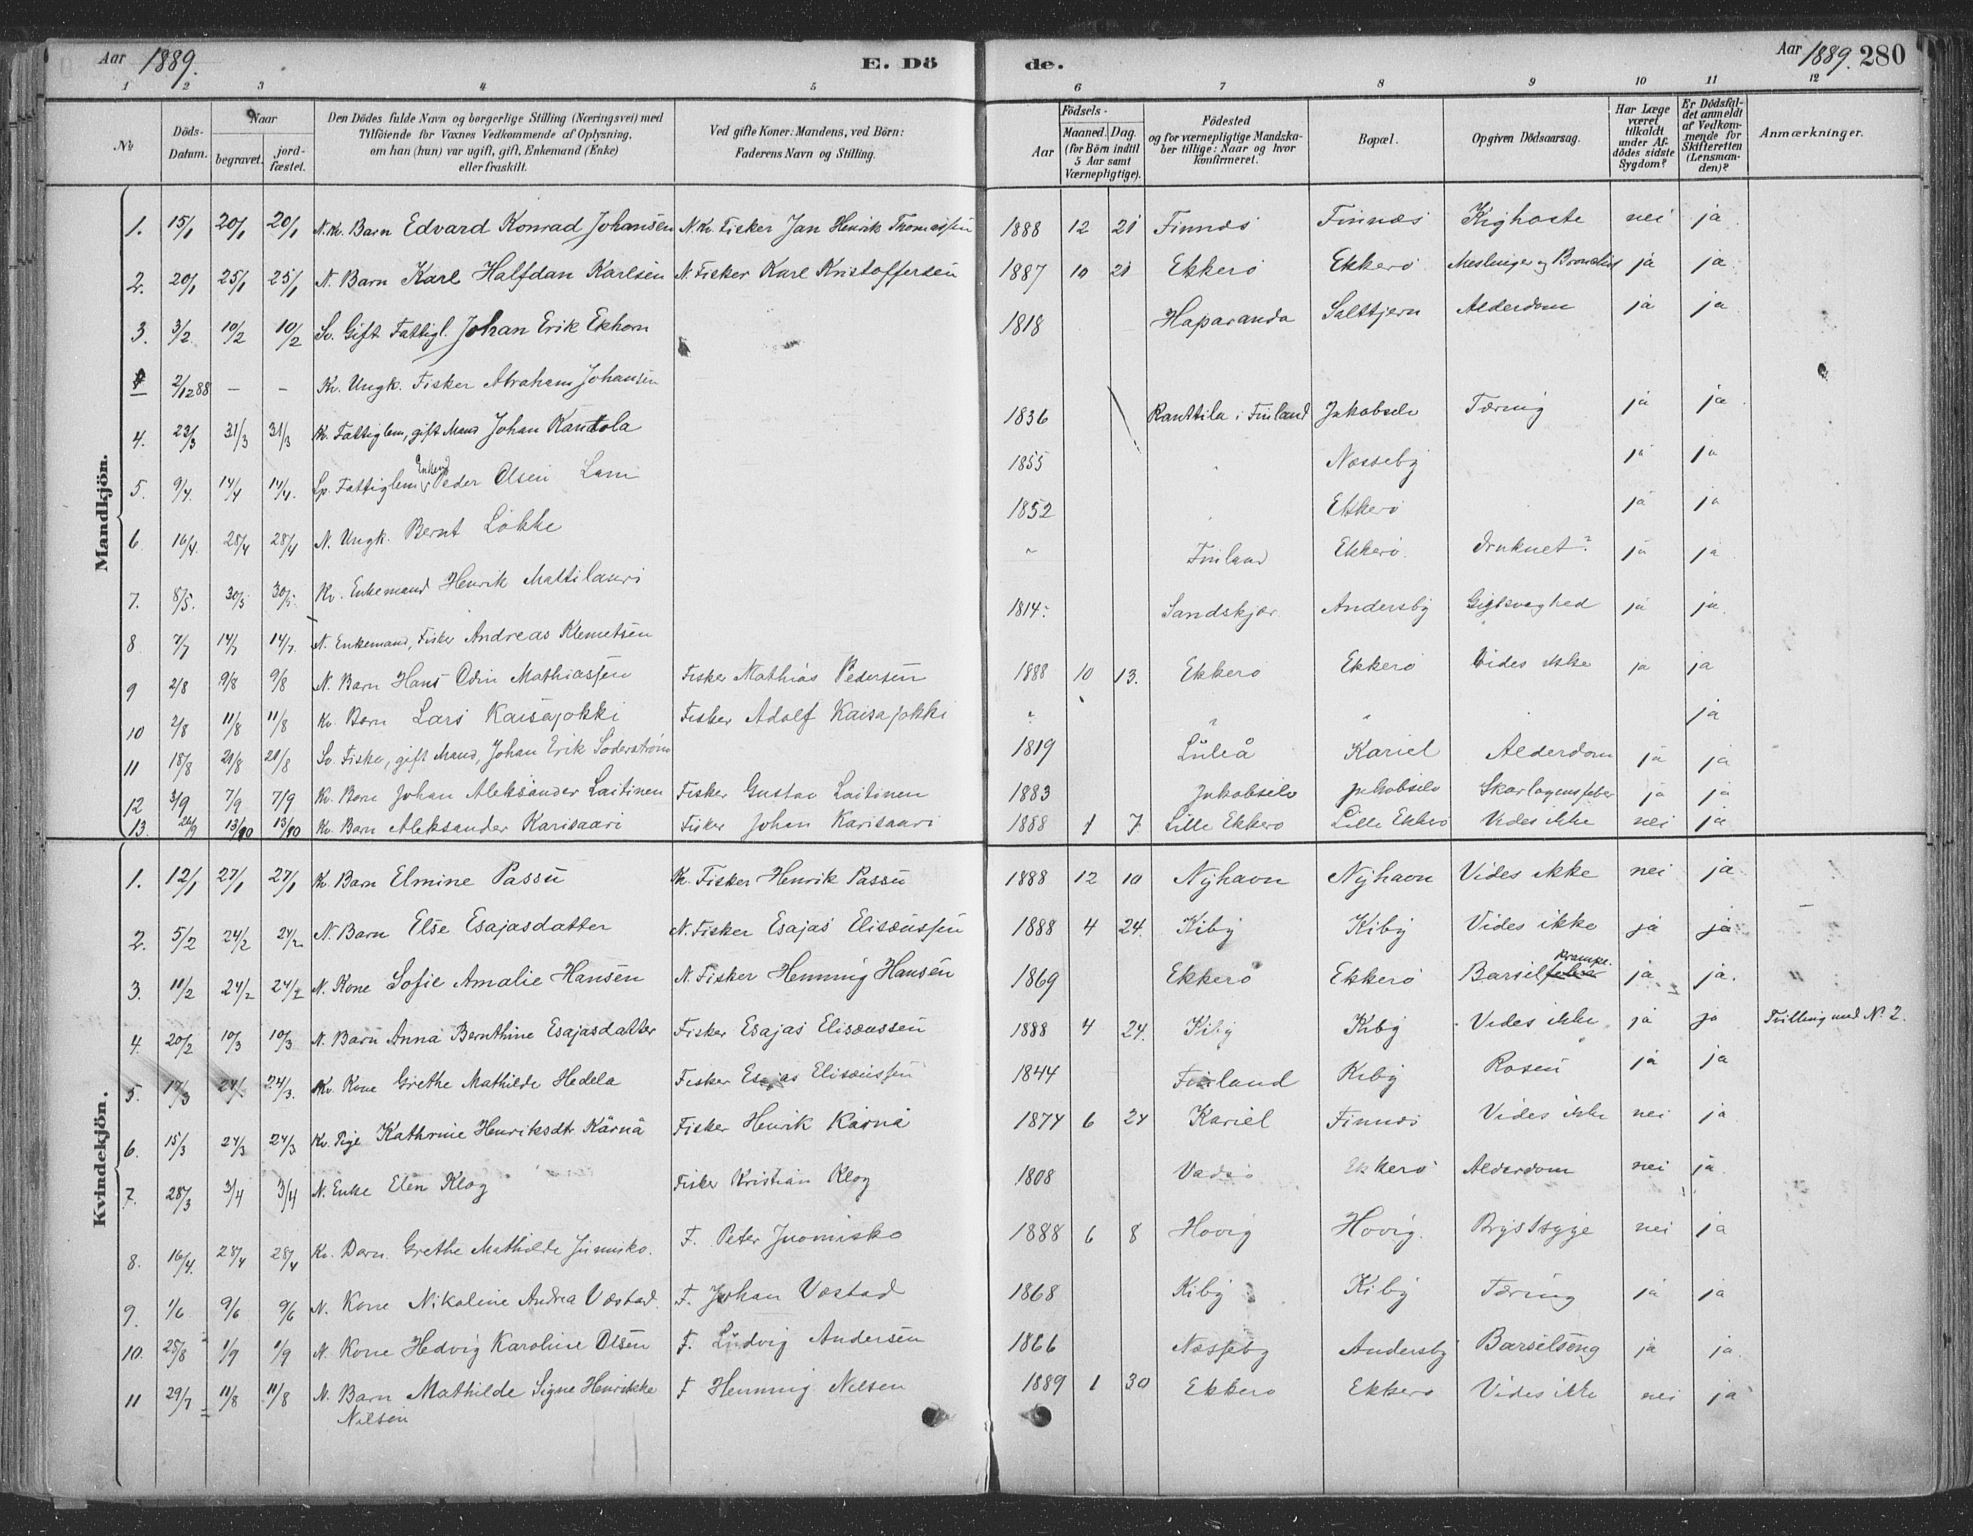 Aar 1889.
E. Dö
de.
Aar 1889. 280
1 2 3 4 5 6 7 8 9 10 11 12
№
Döds-Datum.
Naar
begravet.
jord-fæstet.
Den Dödes fulde Navn og borgerlige Stilling (Næringsvei) med
Tilföiende for Voxnes Vedkommende af Oplysning,
om han (hun) var ugift, gift, Enkemand (Enke)
eller fraskilt.
Ved gifte Koner: Mandens, ved Börn:
Faderens Navn og Stilling.
Födsels-
Aar
Maaned. Dag.
(for Börn indtil
5 Aar samt
Værnepligtige).
Födested
og for værnepligtige Mandska-
ber tillige: Naar og hvor
konfirmeret.
Bopæl.
Opgiven Dödsaarsag.
Har Læge
været
tilkaldt
under Af-
dödes sidste
Sygdom?
Er Dödsfal-
det anmeldt
af Vedkom-
mende for
Skifteretten
(Lensman-
den)?
Anmærkninger.
Mandkjön.
1. 15/1 20/1 20/1 N. Kv. Barn Edvard Konrad Johansen N. Kv. Fisker Jan Henrik Thomassen 1888 12 21 Finnes Finnæs Kighoste nei ja
2. 20/1 25/1 25/1 N. Barn Karl Halfdan Karlsen N. Fisker Karl Kristoffersen 1887 10 21 Ekkerö Ekkerö Meslinger og ja ja
3. 3/2 10/2 10/2 Sv. Gift Fattigl. Johan Erik Ekhorn 1818 Haparanda Saltbjern Alderdom ja ja
2/12 88 – – Kv. Ungk. Fisker Abraham Johansen
4. 23/3 31/3 31/3 Kv. Fattiglem, gift Mand Johan Kantola 1836 Ranttila i Finland Jakobselv Tæring ja ja
5. 9/4 14/4 14/4. Lp. Fattiglem Enkemd Peder Olsen Lam 1855 Næsseby ja ja
6 16/4. 28/4 28/4 N. Ungk. Bernt Lökke 1852 Ekkerö ja ja
7. 8/5. 30/5 30/5 Kv. Enkemand Henrik Mattilauri " Finland Ekkerö. druknet? ja ja
8 7/7 14/7 14/7. N. Enkemand, Fisker Andreas Klemetsen 1814 Sandskjær Andersby Gigtsvaghed ja ja.
9 2/8 9/8 9/8 N. Barn Hans Odin Mathiassen Fisker Mathias Pedersen 1888 10 13. Ekkerö Ekkerö Vides ikke ja ja
10 2/8 11/8 11/8 Kv. Barn Lars Kaisajokki Fisker Adolf Kaisajokki " " " ja
11 18/8 21/8 21/8 Sv. Fisker, gift Mand, Johan Erik Söderström 1819 Luleå Kariel Alderdom ja ja
12 3/9 7/9 7/9 Kv. Barn Johan Aleksander Laitinen Fisker Gustav Laitinen 1883 Jakobselv Jakobselv Skarlagensfeber ja ja
13. 26/9 13/10 13/10 Kv. Barn Aleksander Karisaari Fisker Johan Karisaari 1888 1 7 Lille Ekkerö Lille Ekkerö Vides ikke nei ja
Kvindekjön.
1. 12/1 27/1 27/1 Kv. Barn Elmine Passu Kv. Fisker Henrik Passu 1888 12 10 Nyhavn Nyhavn Vides ikke nei ja
2. 5/2 24/2 24/2 N. Barn Else Esajasdatter N. Fisker Esajas Elisæussen 1888 4 24. Kiby Kiby Vides ikke ja ja
3. 11/2 24/2 24/2 N. Kone Sofie Amalie Hansen N. Fisker Henning Hansen 1869 Ekkerö Ekkerö Barselkrampe. ja ja.
4. 20/2 10/3 10/3 N. Barn Anna Bernthine Esajasdatter Fisker Esajas Elisæussen 1888 4 24. Kiby Kiby Vides ikke ja ja Tvilling med N. 2.
5. 17/3 24/3 24/3. Kv. Kone Grethe Mathilde Hedela Fisker Esajas Elisæussen 1844 Finland Kiby Rosen ja ja
6. 15/3 24/3 24/3 Kv. Pige Kathrine Henriksdtr Kärnä Fisker Henrik Kärnä 1874 6 24 Kariel Finnes Vides ikke nei ja
7. 28/3 3/4 3/4 N. Enke Elen Klog Fisker Kristian Klog 1808 Vadsö Ekkerö Alderdom nei ja
8. 16/4. 28/4 28/4 Kv. Barn Grethe Mathilde Junnisko. F. Peter Juonisko 1888 6 8 Hovig Hovig. Brystsyge nei ja
9. 1/6 9/6 9/6 N. Kone Nikoline Andrea Væstad. F. Johan Væstad 1868 Kiby Kiby Tæring ja ja
10. 25/8 1/9 1/9 N. Kone Hedvig Karoline Olsen F. Ludvig Andersen 1866 Næsseby Andersby Barselseng ja ja.
11 29/7 11/8 11/8 N. Barn Mathilde Signe Henrikke F Henning Nilsen 1889 1 30 Ekkerö Ekkerö Vides ikke nei ja
Nilsen